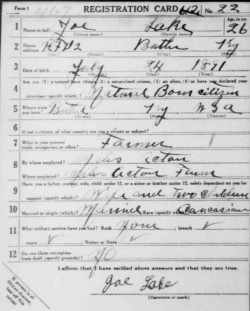 Form 1 REGISTRATION CARD No. 22
1 Name in full Joe Lake Age, in yrs. 26
2 RFD 2 Butler Ky
3 Date of birth July 24 1891
4 Are you (1) a natural-born citizen, (2) a naturalized citizen, (3) an alien, (4) or have you declared your intention (specify which)? Natural Born citizen
5 Where were you born? Ky USA
6 If not a citizen, of what country are you a citizen or subject?
7 What is your present trade, occupation, or office? Farmer
8 By whom employed?
Where employed? Farm
9 Have you a father, mother, wife, child under 12, or a sister or brother under 12, solely dependent on you for support (specify which)? Wife and Two Children
10 Married or single (which)? Married Race (specify which)? Caucasian
11 What military service have you had? Rank None branch
years Nation or State
12 Do you claim exemption from draft (specify grounds)? No
I affirm that I have verified above answers and that they are true.
Joe Lake
(Signature or mark)